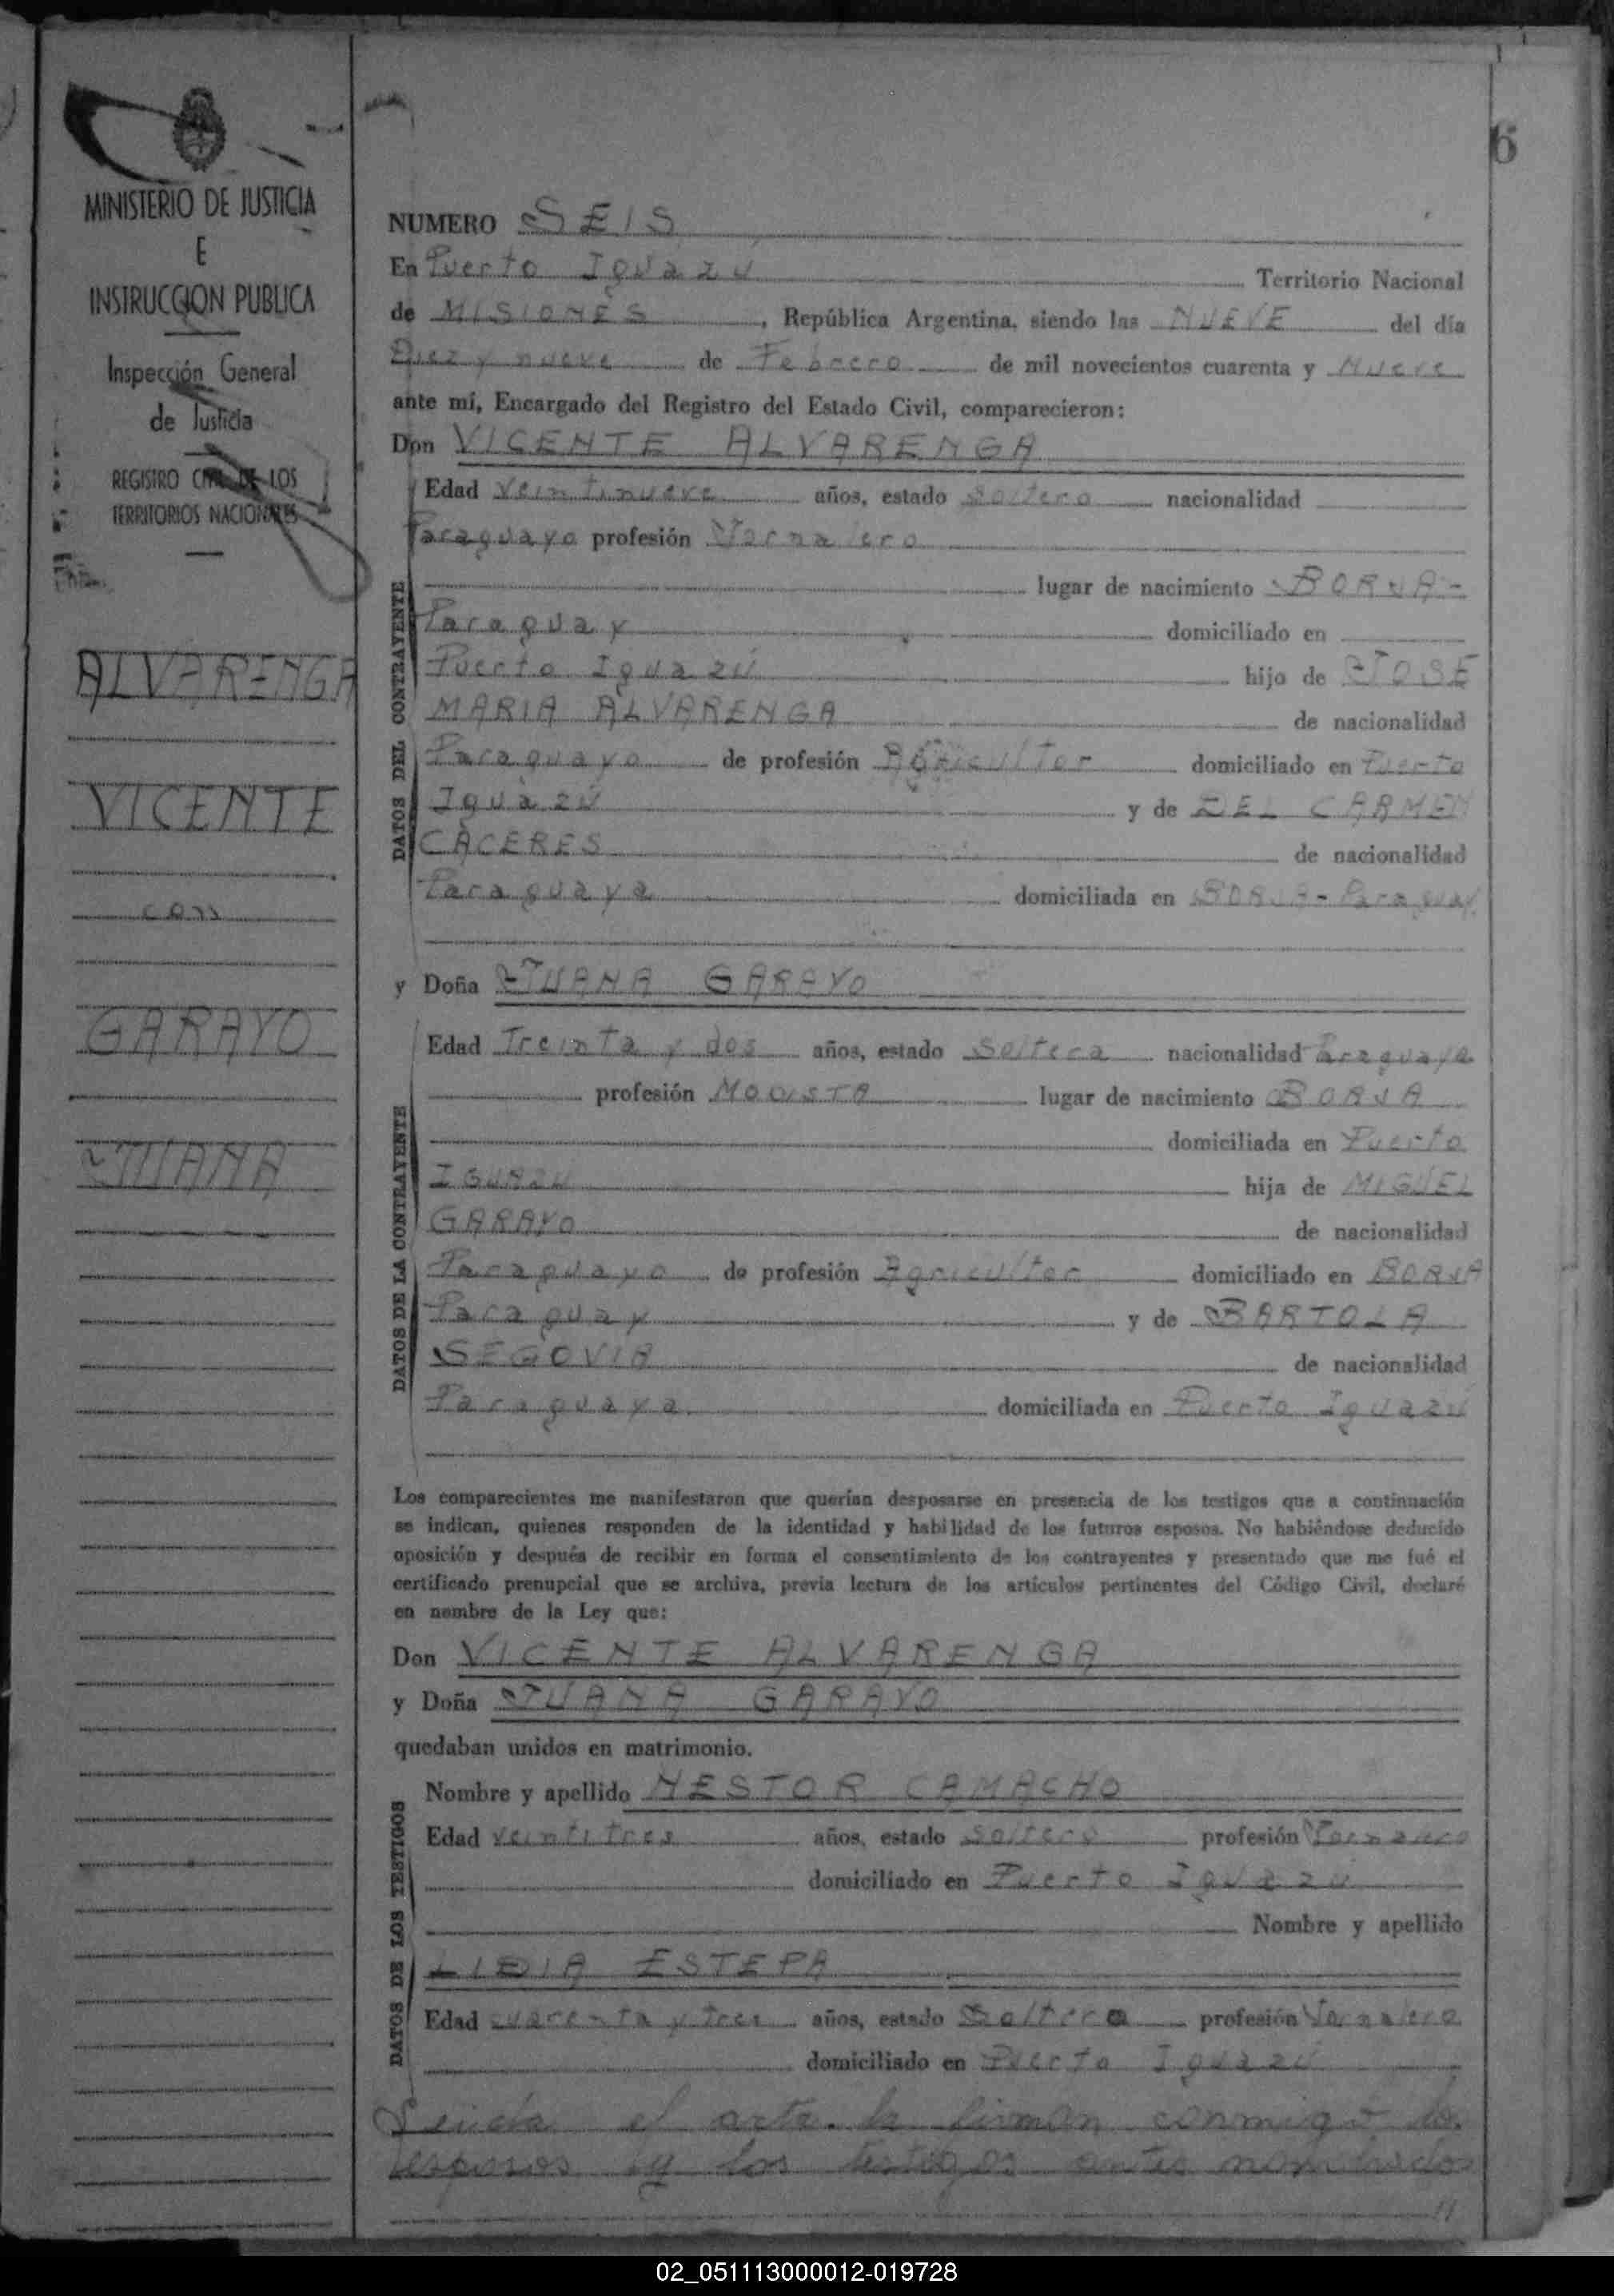 6
MINISTERIO DE JUSTICIA
E
INSTRUCCION PUBLICA
Inspección General
de Justicia
REGISTRO CIVIL DE LOS
TERRITORIOS NACIONALES
ALVARENGA
VICENTE
con
GARAYO
JUANA
NUMERO SEIS
En Puerto Iguazú Territorio Nacional
de MISIONES, República Argentina, siendo las NUEVE del día
Diez y nueve de Febrero de mil novecientos cuarenta y Nueve
ante mí, Encargado del Registro del Estado Civil, comparecieron:
Don VICENTE ALVARENGA
Edad Veintinueve años, estado soltero nacionalidad
Paraguayo profesión Jornalero
lugar de nacimiento BORJA-
Paraguay domiciliado en
Puerto Iguazú hijo de JOSE
MARIA ALVARENGA de nacionalidad
Paraguayo de profesión Agricultor domiciliado en Puerto
Iguazú y de DEL CARMEN
CACERES de nacionalidad
Paraguaya domiciliada en BORJA-Paraguay
DATOS DEL CONTRAYENTE
y Doña JUANA GARAYO
Edad Treinta y dos años, estado soltera nacionalidad Paraguaya
profesión MODISTA lugar de nacimiento BORJA
domiciliada en Puerto
IGUAZU hija de MIGUEL
GARAYO de nacionalidad
Paraguayo de profesión Agricultor domiciliado en BORJA
Paraguay y de BARTOLA
SEGOVIA de nacionalidad
Paraguaya domiciliada en Puerto Iguazú
DATOS DE LA CONTRAYENTE
Los comparecientes me manifestaron que querían desposarse en presencia de los testigos que a continuación
se indican, quienes responden de la identidad y habilidad de los futuros esposos. No habiéndose deducido
oposición y después de recibir en forma el consentimiento de los contrayentes y presentado que me fué el
certificado prenupcial que se archiva, previa lectura de los artículos pertinentes del Código Civil, declaré
en nombre de la Ley que:
Don VICENTE ALVARENGA
y Doña JUANA GARAYO
quedaban unidos en matrimonio.
Nombre y apellido NESTOR CAMACHO
Edad Veintitres años, estado soltero profesión Jornalero
domiciliado en Puerto Iguazú
Nombre y apellido
LIDIA ESTEPA
Edad cuarenta y tres años, estado Soltera profesión Jornalero
domiciliado en Puerto Iguazú
DATOS DE LOS TESTIGOS
Leída el acta la firman conmigo los
esposos y los testigos antes nombrados
02_051113000012-019728